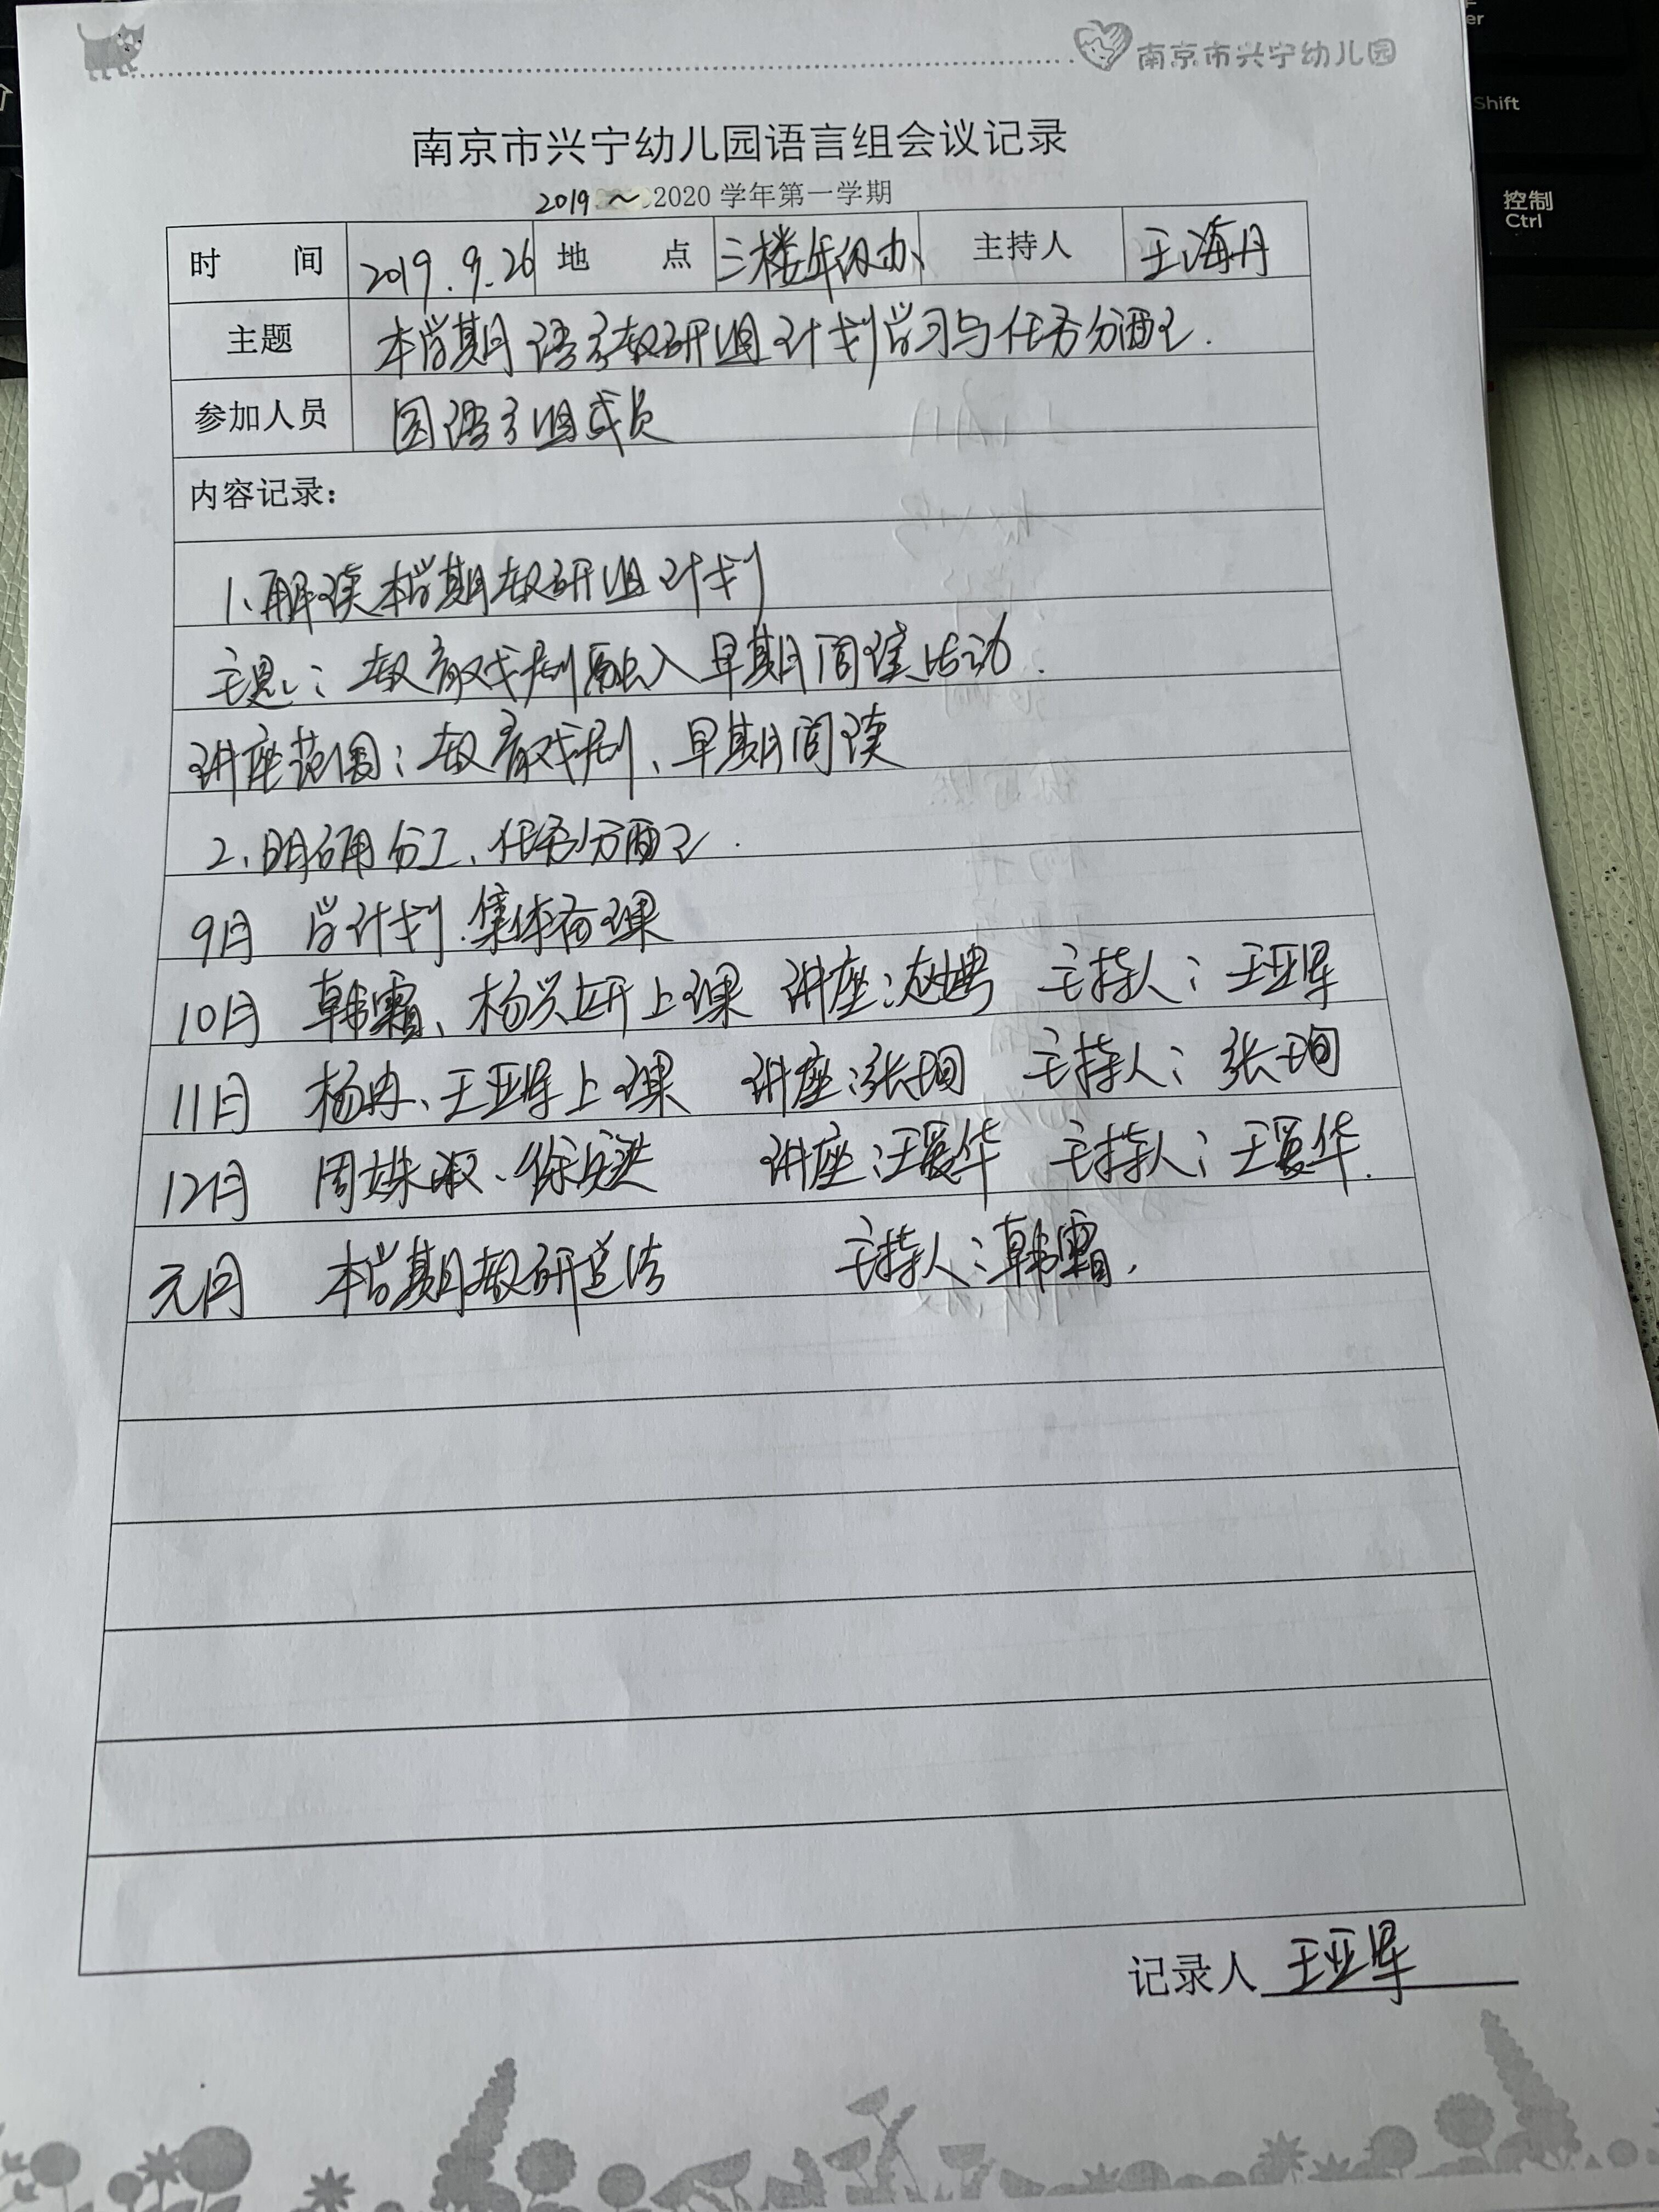 南京市兴宁幼儿园
南京市兴宁幼儿园语言组会议记录
2019～2020学年第一学期
时间 2019.9.26 地点 三楼年级办 主持人 王海丹
主题 本学期语言教研组计划学习与任务分配.
参加人员 园语言组成员
内容记录：
1、解读本学期教研组计划
主题：教育戏剧融入早期阅读活动.
讲座范围：教育戏剧、早期阅读
2、明确分工、任务分配.
9月 学计划.集体备课
10月 韩霜、杨兴研上课 讲座： 主持人：王亚军
11月 杨冉、王亚军上课 讲座：张珣 主持人：张珣
12月 周姝淑、徐 讲座：汪爱华 主持人：王爱华.
元月 本学期教研总结 主持人：韩霜.
记录人 王亚军
Shift
控制
Ctrl